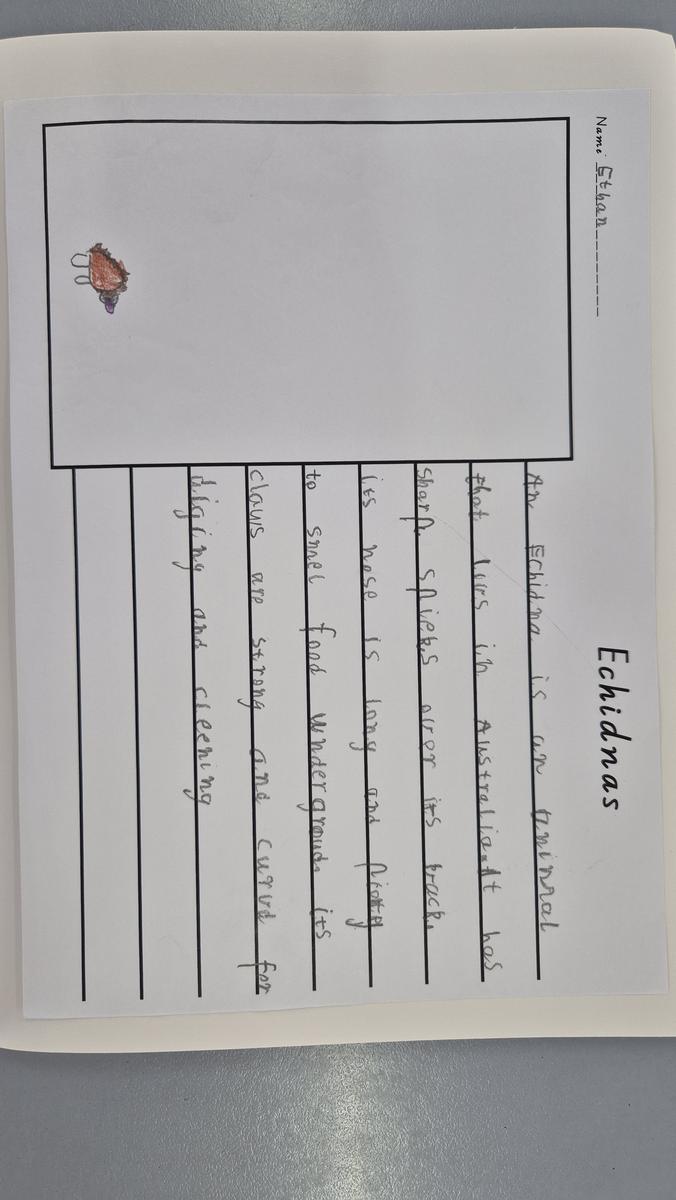 Name Ethan
Echidnas
An Echidna is an aninral
that livs in Australia.It has
sharp spicks over its back.
its nose is long and
to smel food undergroud. its
claws are strong and curvd for
digging and cleening